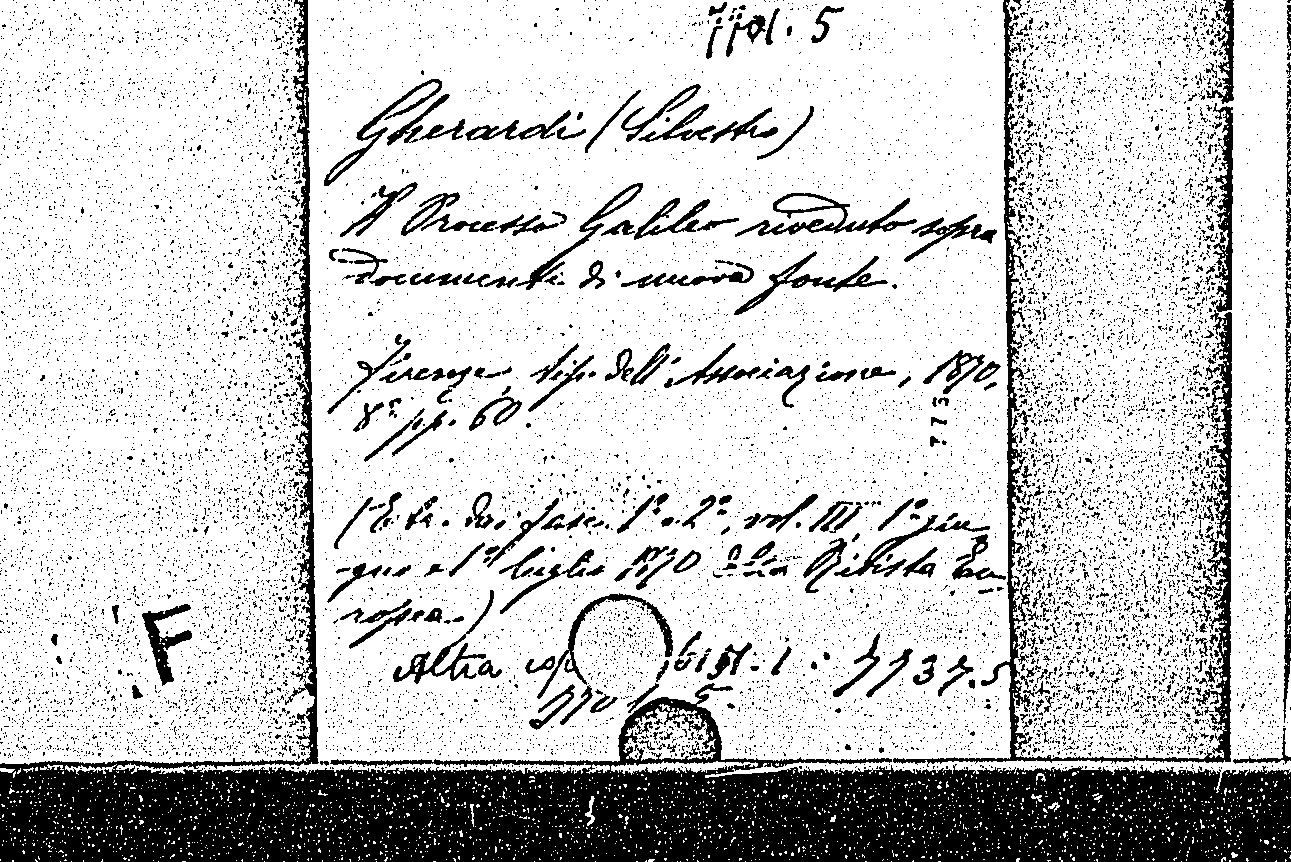 Gherardi (Silvestro)
Il Processo Galileo riveduto sopra
documenti di nuova fonte.
Firenze, tip. dell'Associazione, 1870,
8º pp. 60.
773
(Estr. dai fasc. 1º e 2º, vol. III, 1º giu-
gno e 1º luglio 1870 della Rivista Eu-
ropea.)
Altra
F